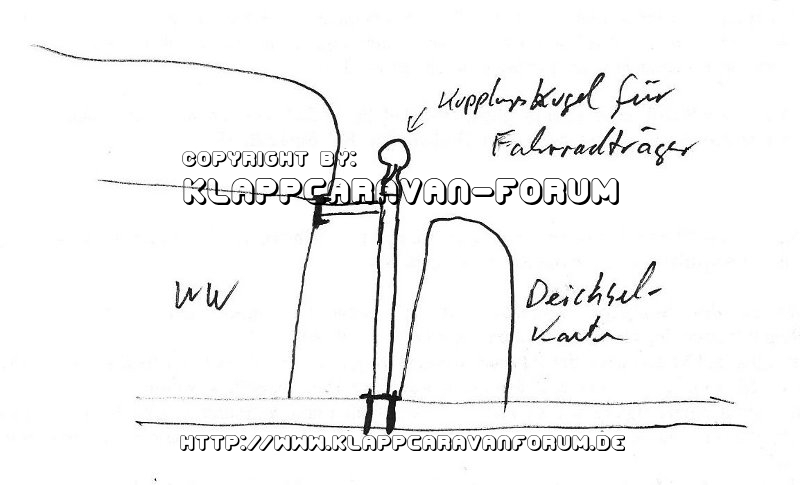 Kupplungskugel für
Fahrradträger
COPYRIGHT BY:
KLAPPCARAVAN-FORUM
WW
Deichsel-
kasten
HTTP://WWW.KLAPPCARAVANFORUM.DE